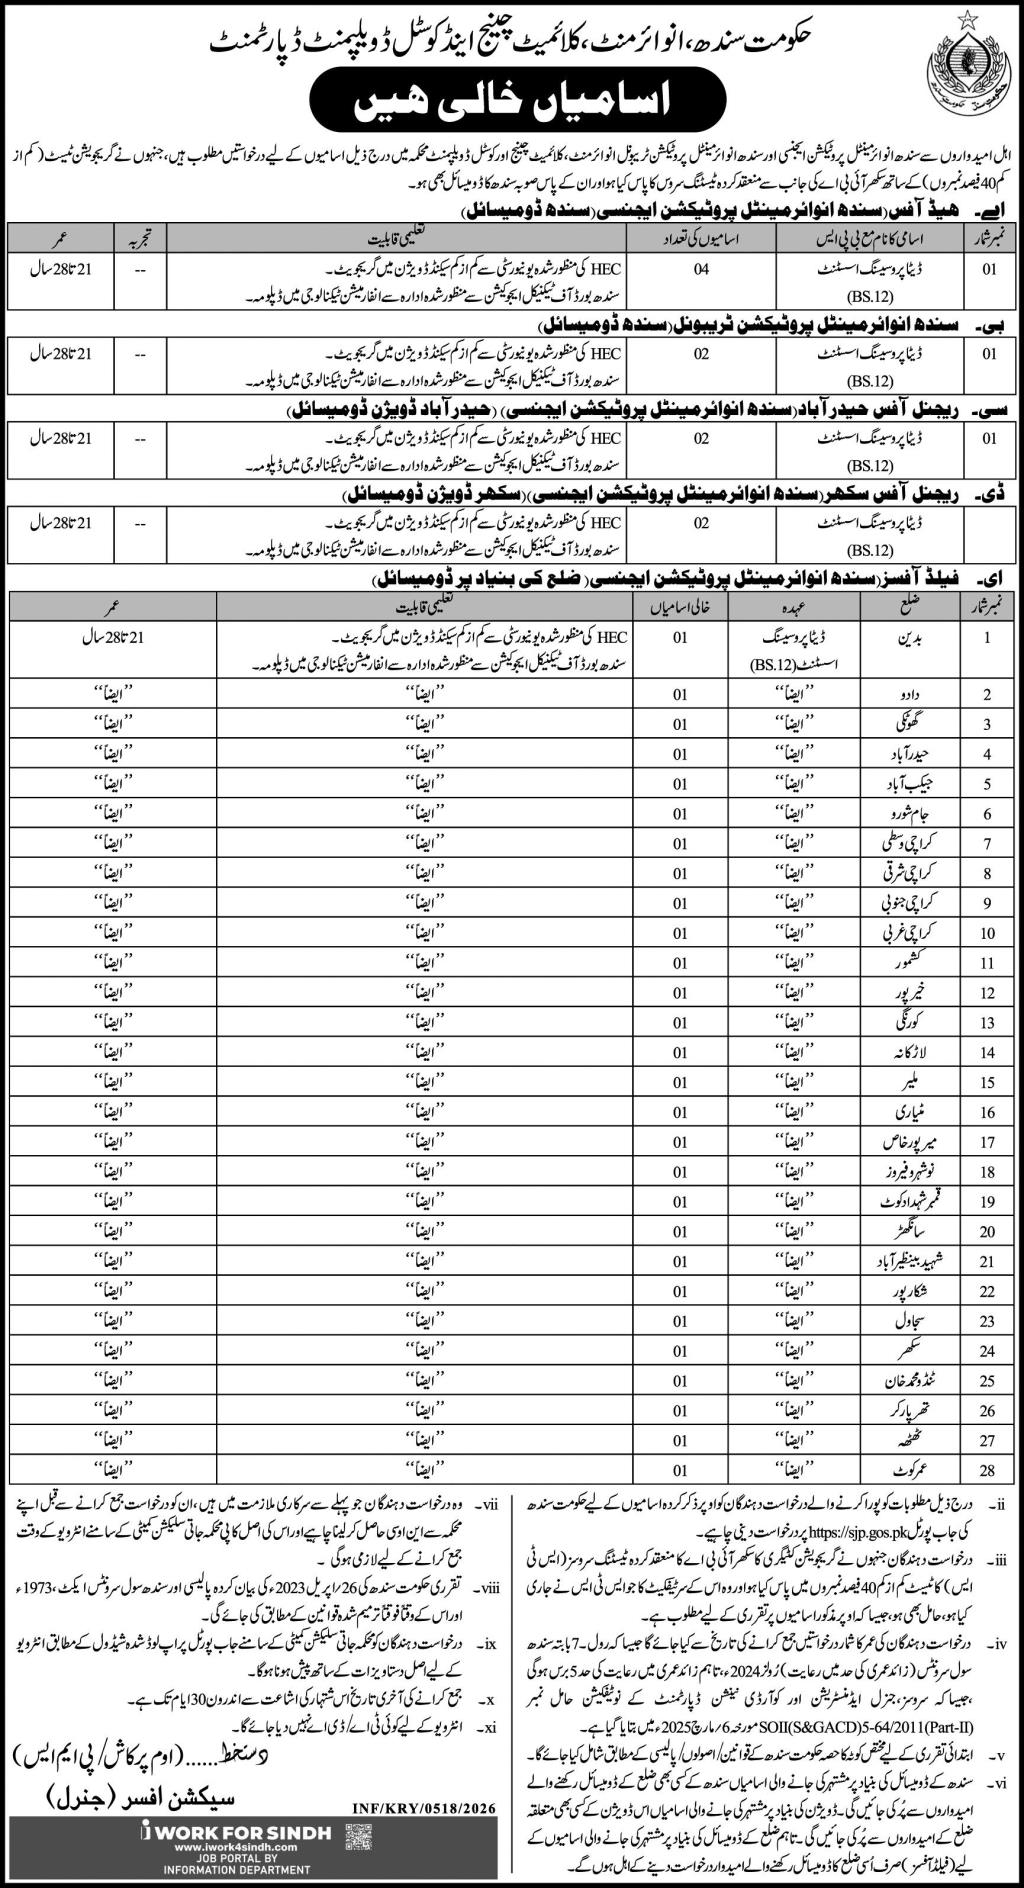 حکومت سندھ، انوائرمنٹ، کلائمیٹ چینج اینڈ کوسٹل ڈویلپمنٹ ڈپارٹمنٹ
اسامیاں خالی ہیں
اہل امیدواروں سے سندھ انوائرمینٹل پروٹیکشن ایجنسی اور سندھ انوائرمینٹل پروٹیکشن ٹریبونل انوائرمنٹ، کلائمیٹ چینج اور کوسٹل ڈویلپمنٹ محکمہ میں درج ذیل اسامیوں کے لیے درخواستیں مطلوب ہیں، جنہوں نے گریجویشن ٹیسٹ (کم از
کم 40 فیصد نمبروں) کے ساتھ سکھر آئی بی اے کی جانب سے منعقد کردہ ٹیسٹنگ سروس کا پاس کیا ہو اور ان کے پاس صوبہ سندھ کا ڈومیسائل بھی ہو۔
اے۔ ہیڈ آفس (سندھ انوائرمینٹل پروٹیکشن ایجنسی) (سندھ ڈومیسائل)
نمبر شمار اسامی کا نام مع بی پی ایس اسامیوں کی تعداد تعلیمی قابلیت تجربہ عمر
01 ڈیٹا پروسیسنگ اسسٹنٹ 04 HEC کی منظور شدہ یونیورسٹی سے کم از کم سیکنڈ ڈویژن میں گریجویٹ۔ -- 21 تا 28 سال
(BS.12) سندھ بورڈ آف ٹیکنیکل ایجوکیشن سے منظور شدہ ادارہ سے انفارمیشن ٹیکنالوجی میں ڈپلومہ۔
بی۔ سندھ انوائرمینٹل پروٹیکشن ٹریبونل (سندھ ڈومیسائل)
01 ڈیٹا پروسیسنگ اسسٹنٹ 02 HEC کی منظور شدہ یونیورسٹی سے کم از کم سیکنڈ ڈویژن میں گریجویٹ۔ -- 21 تا 28 سال
(BS.12) سندھ بورڈ آف ٹیکنیکل ایجوکیشن سے منظور شدہ ادارہ سے انفارمیشن ٹیکنالوجی میں ڈپلومہ۔
سی۔ ریجنل آفس حیدرآباد (سندھ انوائرمینٹل پروٹیکشن ایجنسی) (حیدرآباد ڈویژن ڈومیسائل)
01 ڈیٹا پروسیسنگ اسسٹنٹ 02 HEC کی منظور شدہ یونیورسٹی سے کم از کم سیکنڈ ڈویژن میں گریجویٹ۔ -- 21 تا 28 سال
(BS.12) سندھ بورڈ آف ٹیکنیکل ایجوکیشن سے منظور شدہ ادارہ سے انفارمیشن ٹیکنالوجی میں ڈپلومہ۔
ڈی۔ ریجنل آفس سکھر (سندھ انوائرمینٹل پروٹیکشن ایجنسی) (سکھر ڈویژن ڈومیسائل)
ڈیٹا پروسیسنگ اسسٹنٹ 02 HEC کی منظور شدہ یونیورسٹی سے کم از کم سیکنڈ ڈویژن میں گریجویٹ۔ -- 21 تا 28 سال
(BS.12) سندھ بورڈ آف ٹیکنیکل ایجوکیشن سے منظور شدہ ادارہ سے انفارمیشن ٹیکنالوجی میں ڈپلومہ۔
ای۔ فیلڈ آفسز (سندھ انوائرمینٹل پروٹیکشن ایجنسی) (ضلع کی بنیاد پر ڈومیسائل)
نمبر شمار ضلع عہدہ خالی اسامیاں تعلیمی قابلیت عمر
1 بدین ڈیٹا پروسیسنگ 01 HEC کی منظور شدہ یونیورسٹی سے کم از کم سیکنڈ ڈویژن میں گریجویٹ۔ 21 تا 28 سال
اسسٹنٹ (BS.12) سندھ بورڈ آف ٹیکنیکل ایجوکیشن سے منظور شدہ ادارہ سے انفارمیشن ٹیکنالوجی میں ڈپلومہ۔
2 دادو ”ایضاً“ 01 ”ایضاً“ ”ایضاً“
3 گھوٹکی ”ایضاً“ 01 ”ایضاً“ ”ایضاً“
4 حیدرآباد ”ایضاً“ 01 ”ایضاً“ ”ایضاً“
5 جیکب آباد ”ایضاً“ 01 ”ایضاً“ ”ایضاً“
6 جام شورو ”ایضاً“ 01 ”ایضاً“ ”ایضاً“
7 کراچی وسطی ”ایضاً“ 01 ”ایضاً“ ”ایضاً“
8 کراچی شرقی ”ایضاً“ 01 ”ایضاً“ ”ایضاً“
9 کراچی جنوبی ”ایضاً“ 01 ”ایضاً“ ”ایضاً“
10 کراچی غربی ”ایضاً“ 01 ”ایضاً“ ”ایضاً“
11 کشمور ”ایضاً“ 01 ”ایضاً“ ”ایضاً“
12 خیرپور ”ایضاً“ 01 ”ایضاً“ ”ایضاً“
13 کورنگی ”ایضاً“ 01 ”ایضاً“ ”ایضاً“
14 لاڑکانہ ”ایضاً“ 01 ”ایضاً“ ”ایضاً“
15 ملیر ”ایضاً“ 01 ”ایضاً“ ”ایضاً“
16 مٹیاری ”ایضاً“ 01 ”ایضاً“ ”ایضاً“
17 میرپورخاص ”ایضاً“ 01 ”ایضاً“ ”ایضاً“
18 نوشہرو فیروز ”ایضاً“ 01 ”ایضاً“ ”ایضاً“
19 قمبر شہدادکوٹ ”ایضاً“ 01 ”ایضاً“ ”ایضاً“
20 سانگھڑ ”ایضاً“ 01 ”ایضاً“ ”ایضاً“
21 شہید بینظیر آباد ”ایضاً“ 01 ”ایضاً“ ”ایضاً“
22 شکارپور ”ایضاً“ 01 ”ایضاً“ ”ایضاً“
23 سجاول ”ایضاً“ 01 ”ایضاً“ ”ایضاً“
24 سکھر ”ایضاً“ 01 ”ایضاً“ ”ایضاً“
25 ٹنڈو محمد خان ”ایضاً“ 01 ”ایضاً“ ”ایضاً“
26 تھرپارکر ”ایضاً“ 01 ”ایضاً“ ”ایضاً“
27 ٹھٹھہ ”ایضاً“ 01 ”ایضاً“ ”ایضاً“
28 عمرکوٹ ”ایضاً“ 01 ”ایضاً“ ”ایضاً“
ii۔ درج ذیل مطلوبات کو پورا کرنے والے درخواست دہندگان کو اوپر ذکر کردہ اسامیوں کے لیے حکومت سندھ
کی جاب پورٹل https://sjp.gos.pk پر درخواست دینی چاہیے۔
iii۔ درخواست دہندگان جنہوں نے گریجویشن کٹیگری کا سکھر آئی بی اے کا منعقد کردہ ٹیسٹنگ سروسز (ایس ٹی
ایس) کا ٹیسٹ کم از کم 40 فیصد نمبروں میں پاس کیا ہو اور وہ اس کے سرٹیفکیٹ کا جو ایس ٹی ایس نے جاری
کیا ہو، حامل بھی ہو، جیسا کہ اوپر مذکور اسامیوں پر تقرری کے لیے مطلوب ہے۔
iv۔ درخواست دہندگان کی عمر کا شمار درخواستیں جمع کرانے کی تاریخ سے کیا جائے گا جیسا کہ رول۔7 بابتہ سندھ
سول سرونٹس (زائد عمری کی حد میں رعایت) رُولز 2024ء، تاہم زائد عمری میں رعایت کی حد 5 برس ہوگی
، جیسا کہ سروسز، جنرل ایڈمنسٹریشن اور کوآرڈی نیشن ڈپارٹمنٹ کے نوٹیفکیشن حامل نمبر
SOII(S&GACD)5-64/2011(Part-II) مورخہ 6/مارچ 2025ء میں بتایا گیا ہے۔
v۔ ابتدائی تقرری کے لیے مختص کوٹا حصہ حکومت سندھ کے قوانین/اصولوں/پالیسی کے مطابق شامل کیا جائے گا۔
vi۔ سندھ کے ڈومیسائل کی بنیاد پر مشتہر کی جانے والی اسامیاں سندھ کے کسی بھی ضلع کے ڈومیسائل رکھنے والے
امیدواروں سے پُر کی جائیں گی۔ ڈویژن کی بنیاد پر مشتہر کی جانے والی اسامیاں اس ڈویژن کے کسی بھی متعلقہ
ضلع کے امیدواروں سے پُر کی جائیں گی۔ تاہم ضلع کے ڈومیسائل کی بنیاد پر مشتہر کی جانے والی اسامیوں کے
لیے (فیلڈ آفسز) صرف اُسی ضلع کا ڈومیسائل رکھنے والے امیدوار درخواست دینے کے اہل ہوں گے۔
vii۔ وہ درخواست دہندگان جو پہلے سے سرکاری ملازمت میں ہیں، ان کو درخواست جمع کرانے سے قبل اپنے
محکمہ سے این او سی حاصل کر لینا چاہیے اور اس کی اصل کاپی محکمہ جاتی سلیکشن کمیٹی کے سامنے انٹرویو کے وقت
جمع کرانے کے لیے لازمی ہوگی۔
viii۔ تقرری حکومت سندھ کی 26/اپریل 2023ء کی بیان کردہ پالیسی اور سندھ سول سرونٹس ایکٹ، 1973ء
اور اس کے وقتاً فوقتاً ترمیم شدہ قوانین کے مطابق کی جائے گی۔
ix۔ درخواست دہندگان کو محکمہ جاتی سلیکشن کمیٹی کے سامنے جاب پورٹل پر اپ لوڈ شدہ شیڈول کے مطابق انٹرویو
کے لیے اصل دستاویزات کے ساتھ پیش ہونا ہوگا۔
x۔ جمع کرانے کی آخری تاریخ اس اشتہار کی اشاعت سے اندرون 30 ایام تک ہے۔
xi۔ انٹرویو کے لیے کوئی ٹی اے/ڈی اے نہیں دیا جائے گا۔
دستخط...... (اوم پرکاش/پی ایم ایس)
سیکشن افسر (جنرل)
INF/KRY/0518/2026
i WORK FOR SINDH
www.iwork4sindh.com
JOB PORTAL BY
INFORMATION DEPARTMENT